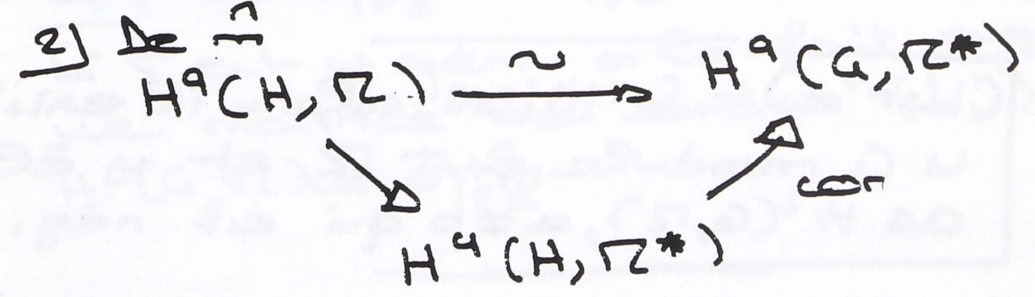 2) De m̂
H^q(H, M) ⟶^∼ H^q(G, M*)
cor
H^q(H, M*)